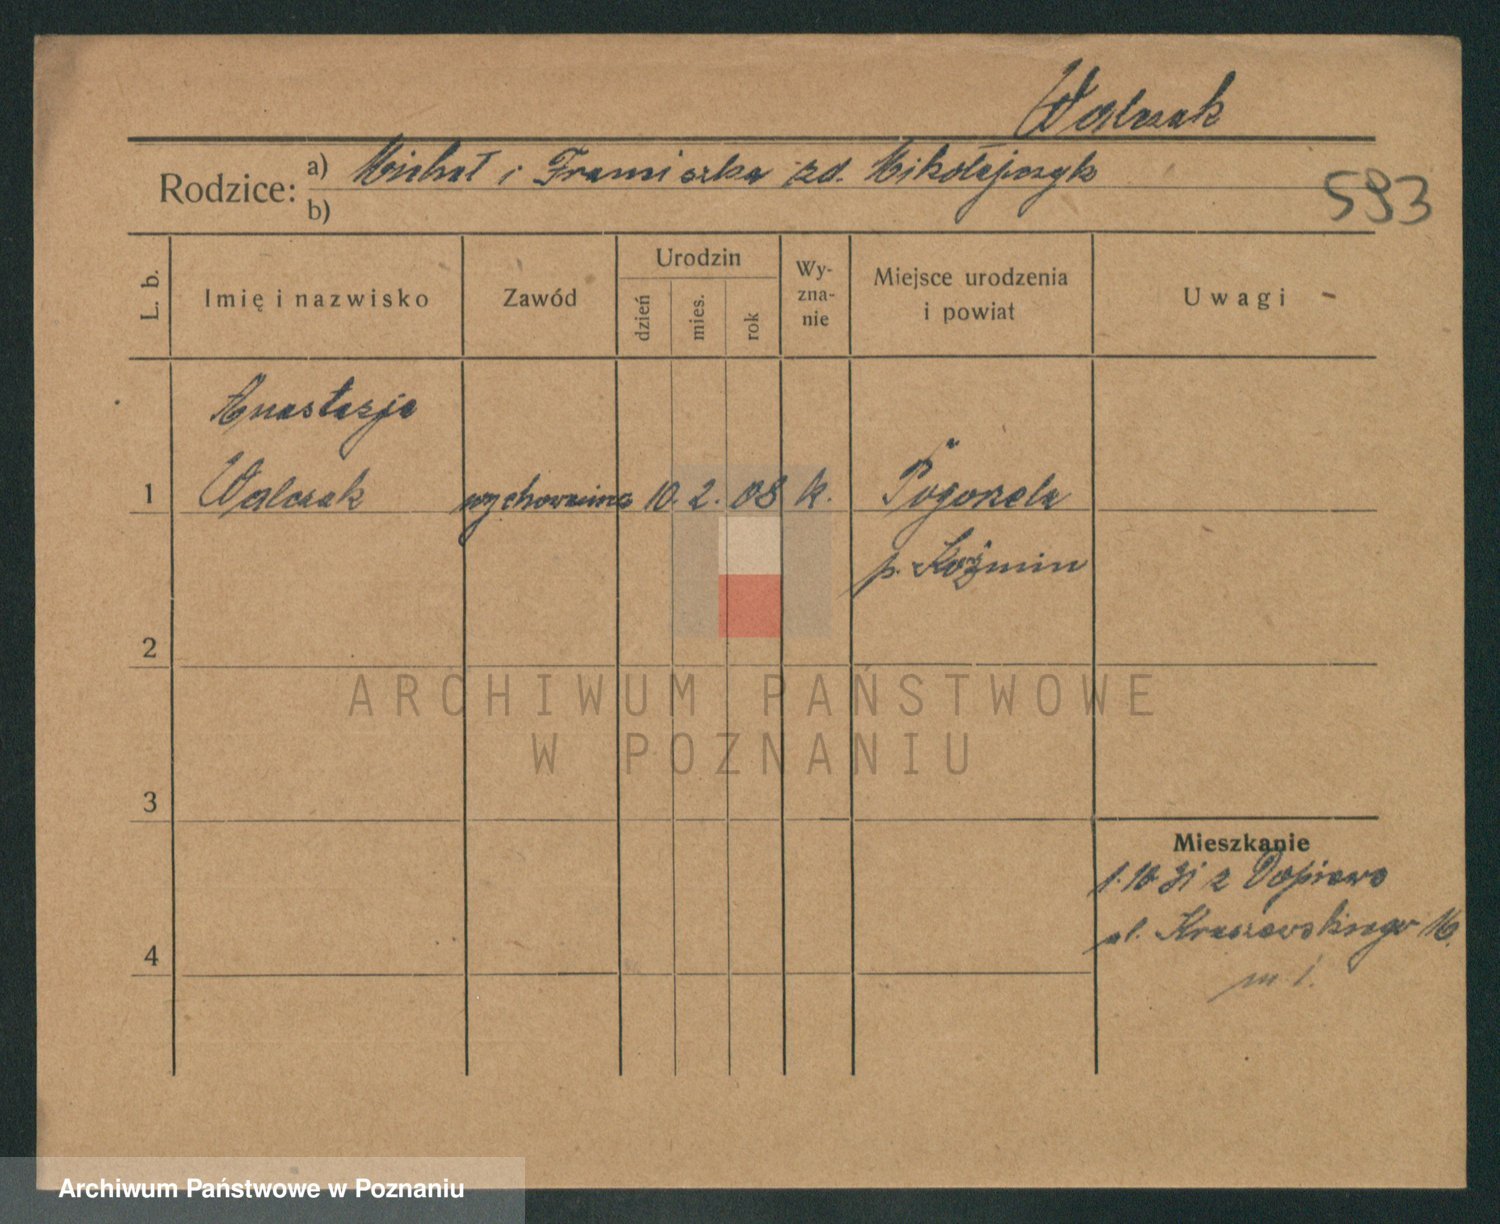 Walczak
Rodzice: a) Michał i Franciszka zd. Mikołajczyk
b)
593
L. b.
Imię i nazwisko
Zawód
Urodzin
dzień
mies.
rok
Wy-
zna-
nie
Miejsce urodzenia
i powiat
Uwagi
Anastazja
1 Walczak wychowawcz. 10. 2. 08 k. Pogorzela
p. Koźmin
2
ARCHIWUM PAŃSTWOWE
W POZNANIU
3
Mieszkanie
1.10 31 z Dopiewo
ul. Kraszewskiego 16.
4
m 1.
Archiwum Państwowe w Poznaniu